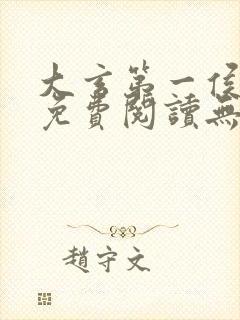 大言第一侯
免費閱讀無
趙守文